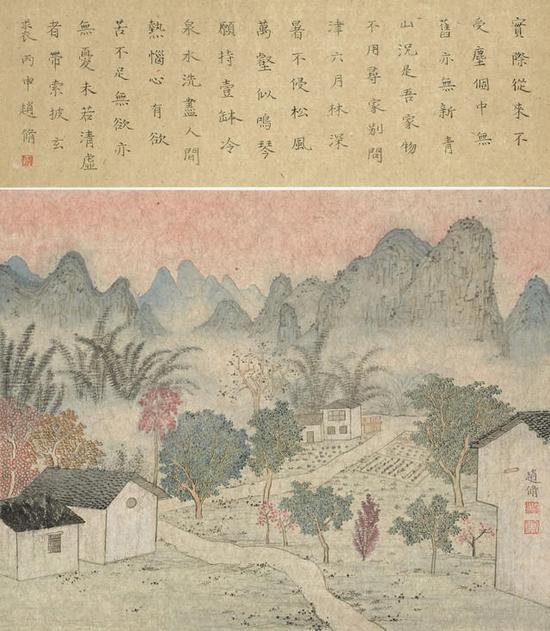 實際從來不
受塵個中無
舊亦無新青
山況是吾家物
不用尋家別問
津六月林深
暑不侵松風
萬壑似鳴琴
願持壹缽冷
泉水洗盡人間
熱惱心有欲
苦不足無欲亦
無憂未若清虛
者帶索披玄
裘丙申趙脩
趙脩